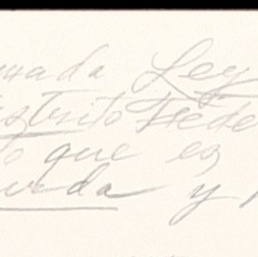 mada Ley
strito Fede
to que es
urda y